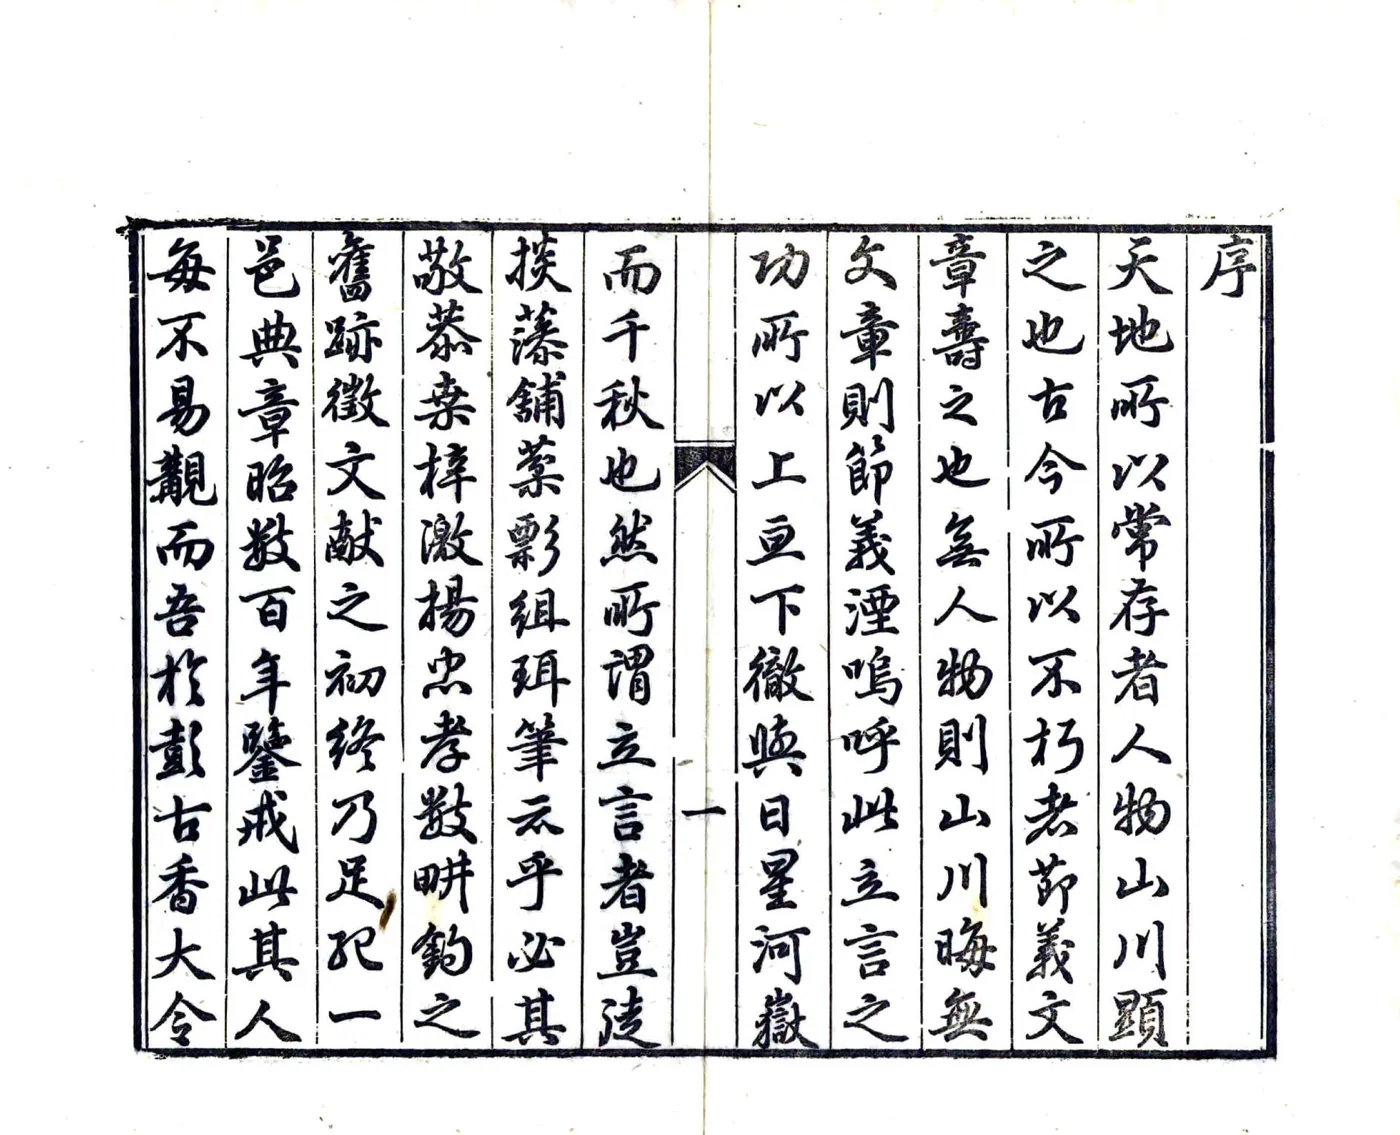 序
天地所以常存者人物山川顯
之也古今所以不朽者節義文
章壽之也無人物則山川晦無
文章則節義湮嗚呼此立言之
功所以上亘下徹與日星河嶽
一
而千秋也然所謂立言者豈徒
掞藻舖葉彩組珥筆云乎必其
敬恭桑梓激揚忠孝數畊釣之
舊跡徵文献之初終乃足紀一
邑典章昭數百年鑒戒此其人
每不易覯而吾於彭古香大令